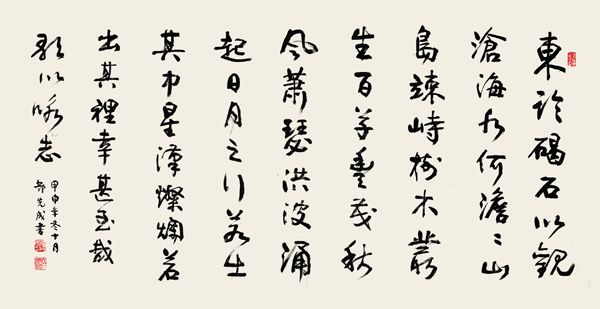 東臨碣石以觀
滄海水何澹〻山
島竦峙樹木叢
生百草豐茂秋
風蕭瑟洪波涌
起日月之行若出
其中星漢燦爛若
出其裡幸甚至哉
歌以咏志
甲申年冬十月
先成書